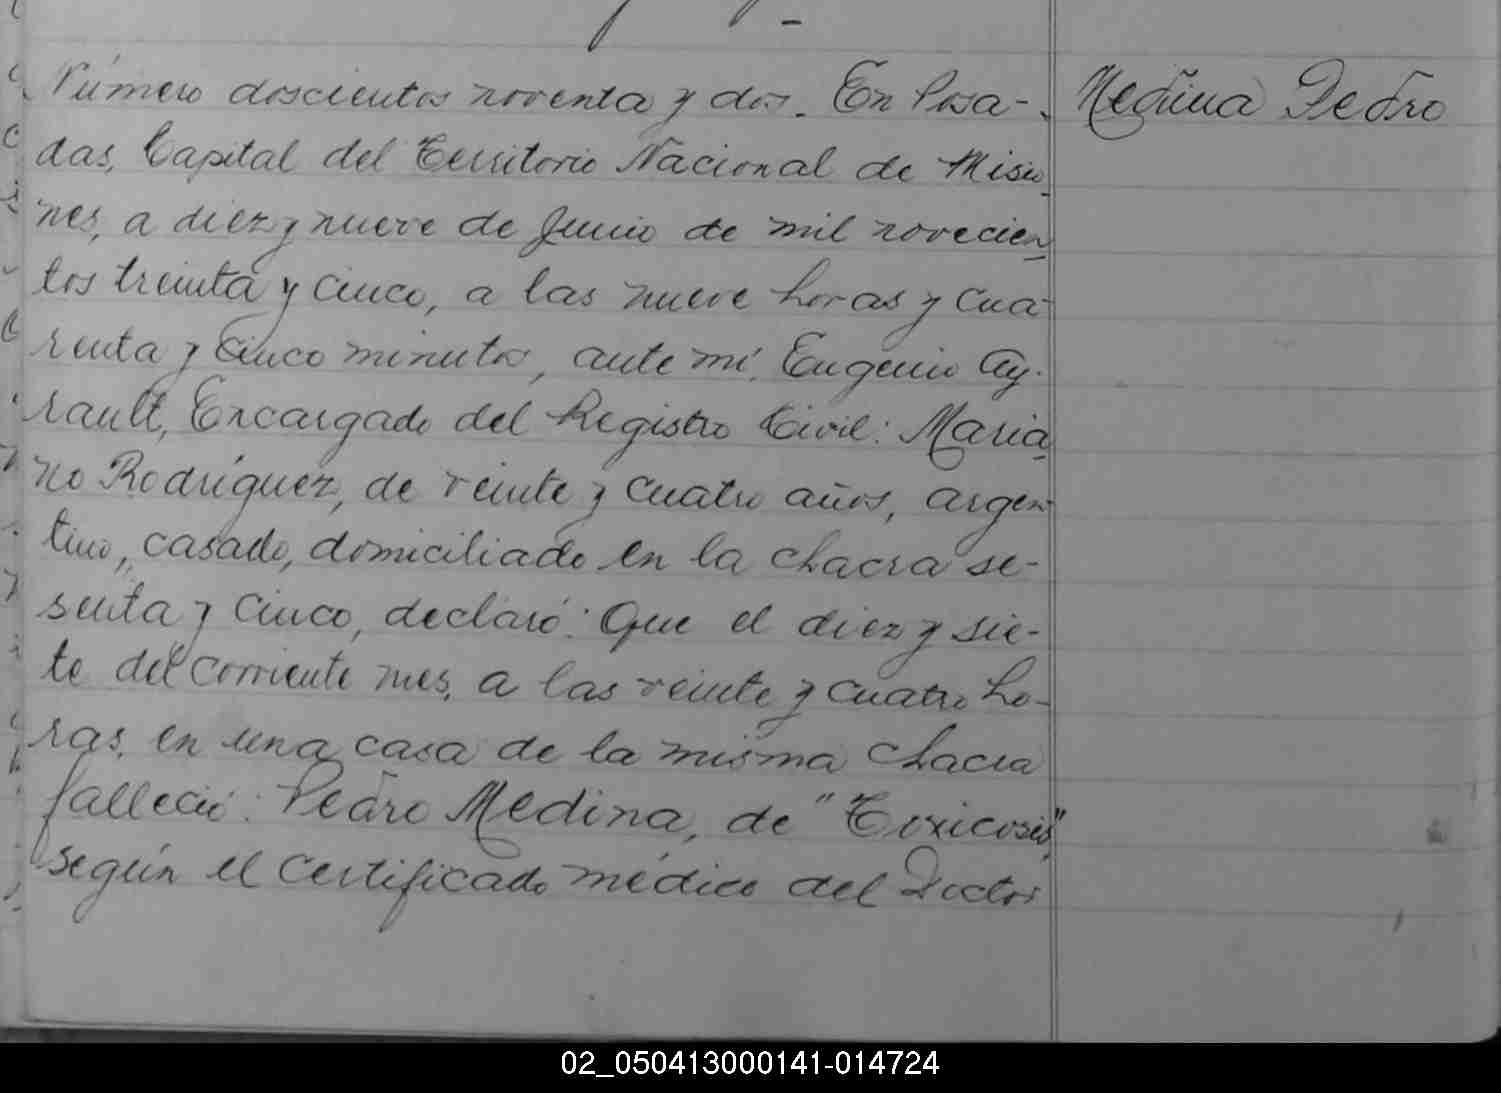 Número doscientos noventa y dos. En Posa-
Medina Pedro
das, Capital del Territorio Nacional de Misio
nes, a diez y nueve de Junio de mil novecien
tos treinta y cinco, a las nueve horas y cua-
renta y cinco minutos, ante mí, Eugenio Ay-
rault, Encargado del Registro Civil: Maria
no Rodríguez, de veinte y cuatro años, argen
tino, casado, domiciliado en la chacra se-
senta y cinco, declaró: Que el diez y sie-
te del corriente mes, a las veinte y cuatro ho-
ras, en una casa de la misma chacra
falleció: Pedro Medina, de "Toxicosis",
según el certificado médico del Doctor
02_050413000141-014724